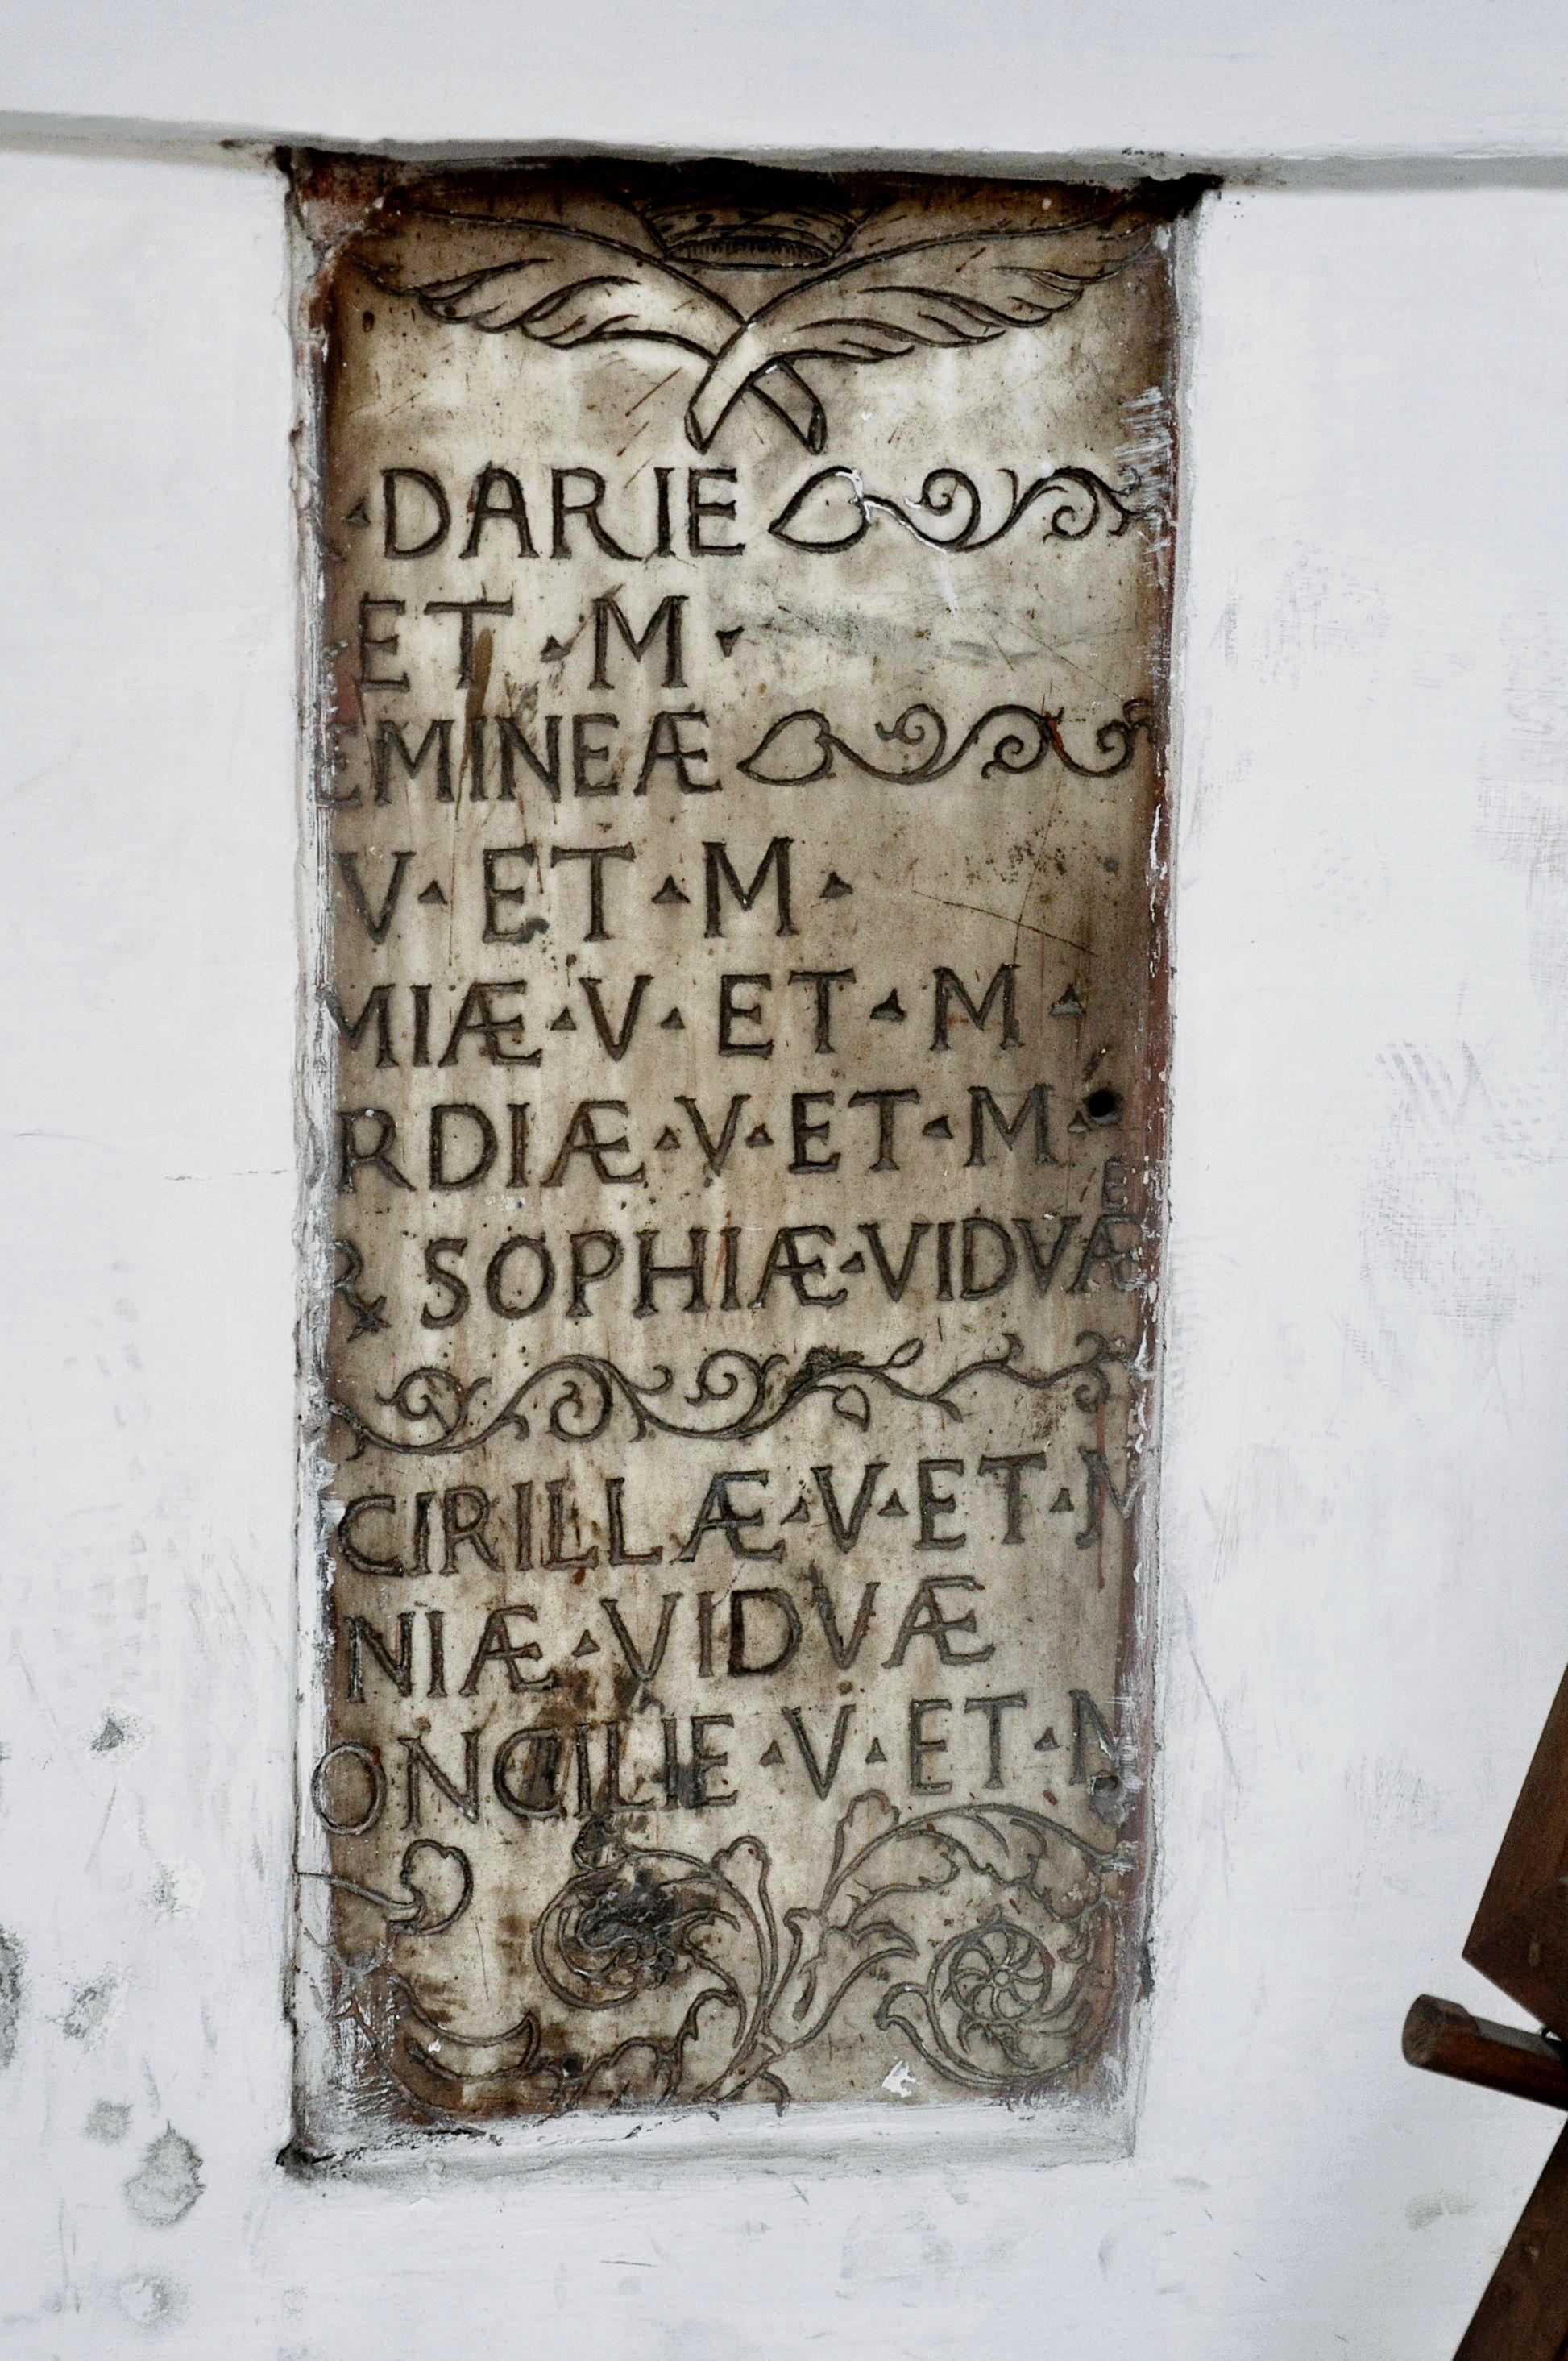 ▴DARIE
ET▴M▾
EMINEÆ
V▴ET▴M▴
MIÆ▴V▴ET▴M▴
RDIÆ▴V▴ET▴M▴
E
& SOPHIÆ▴VIDVÆ
CIRILLÆ▴V▴ET▴M
NIÆ▴VIDVÆ
ONCILIE▴V▴ET▴M